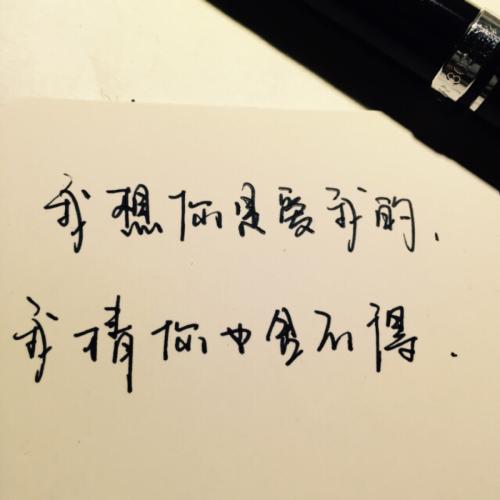 我想你是爱我的，
我猜你也舍不得．